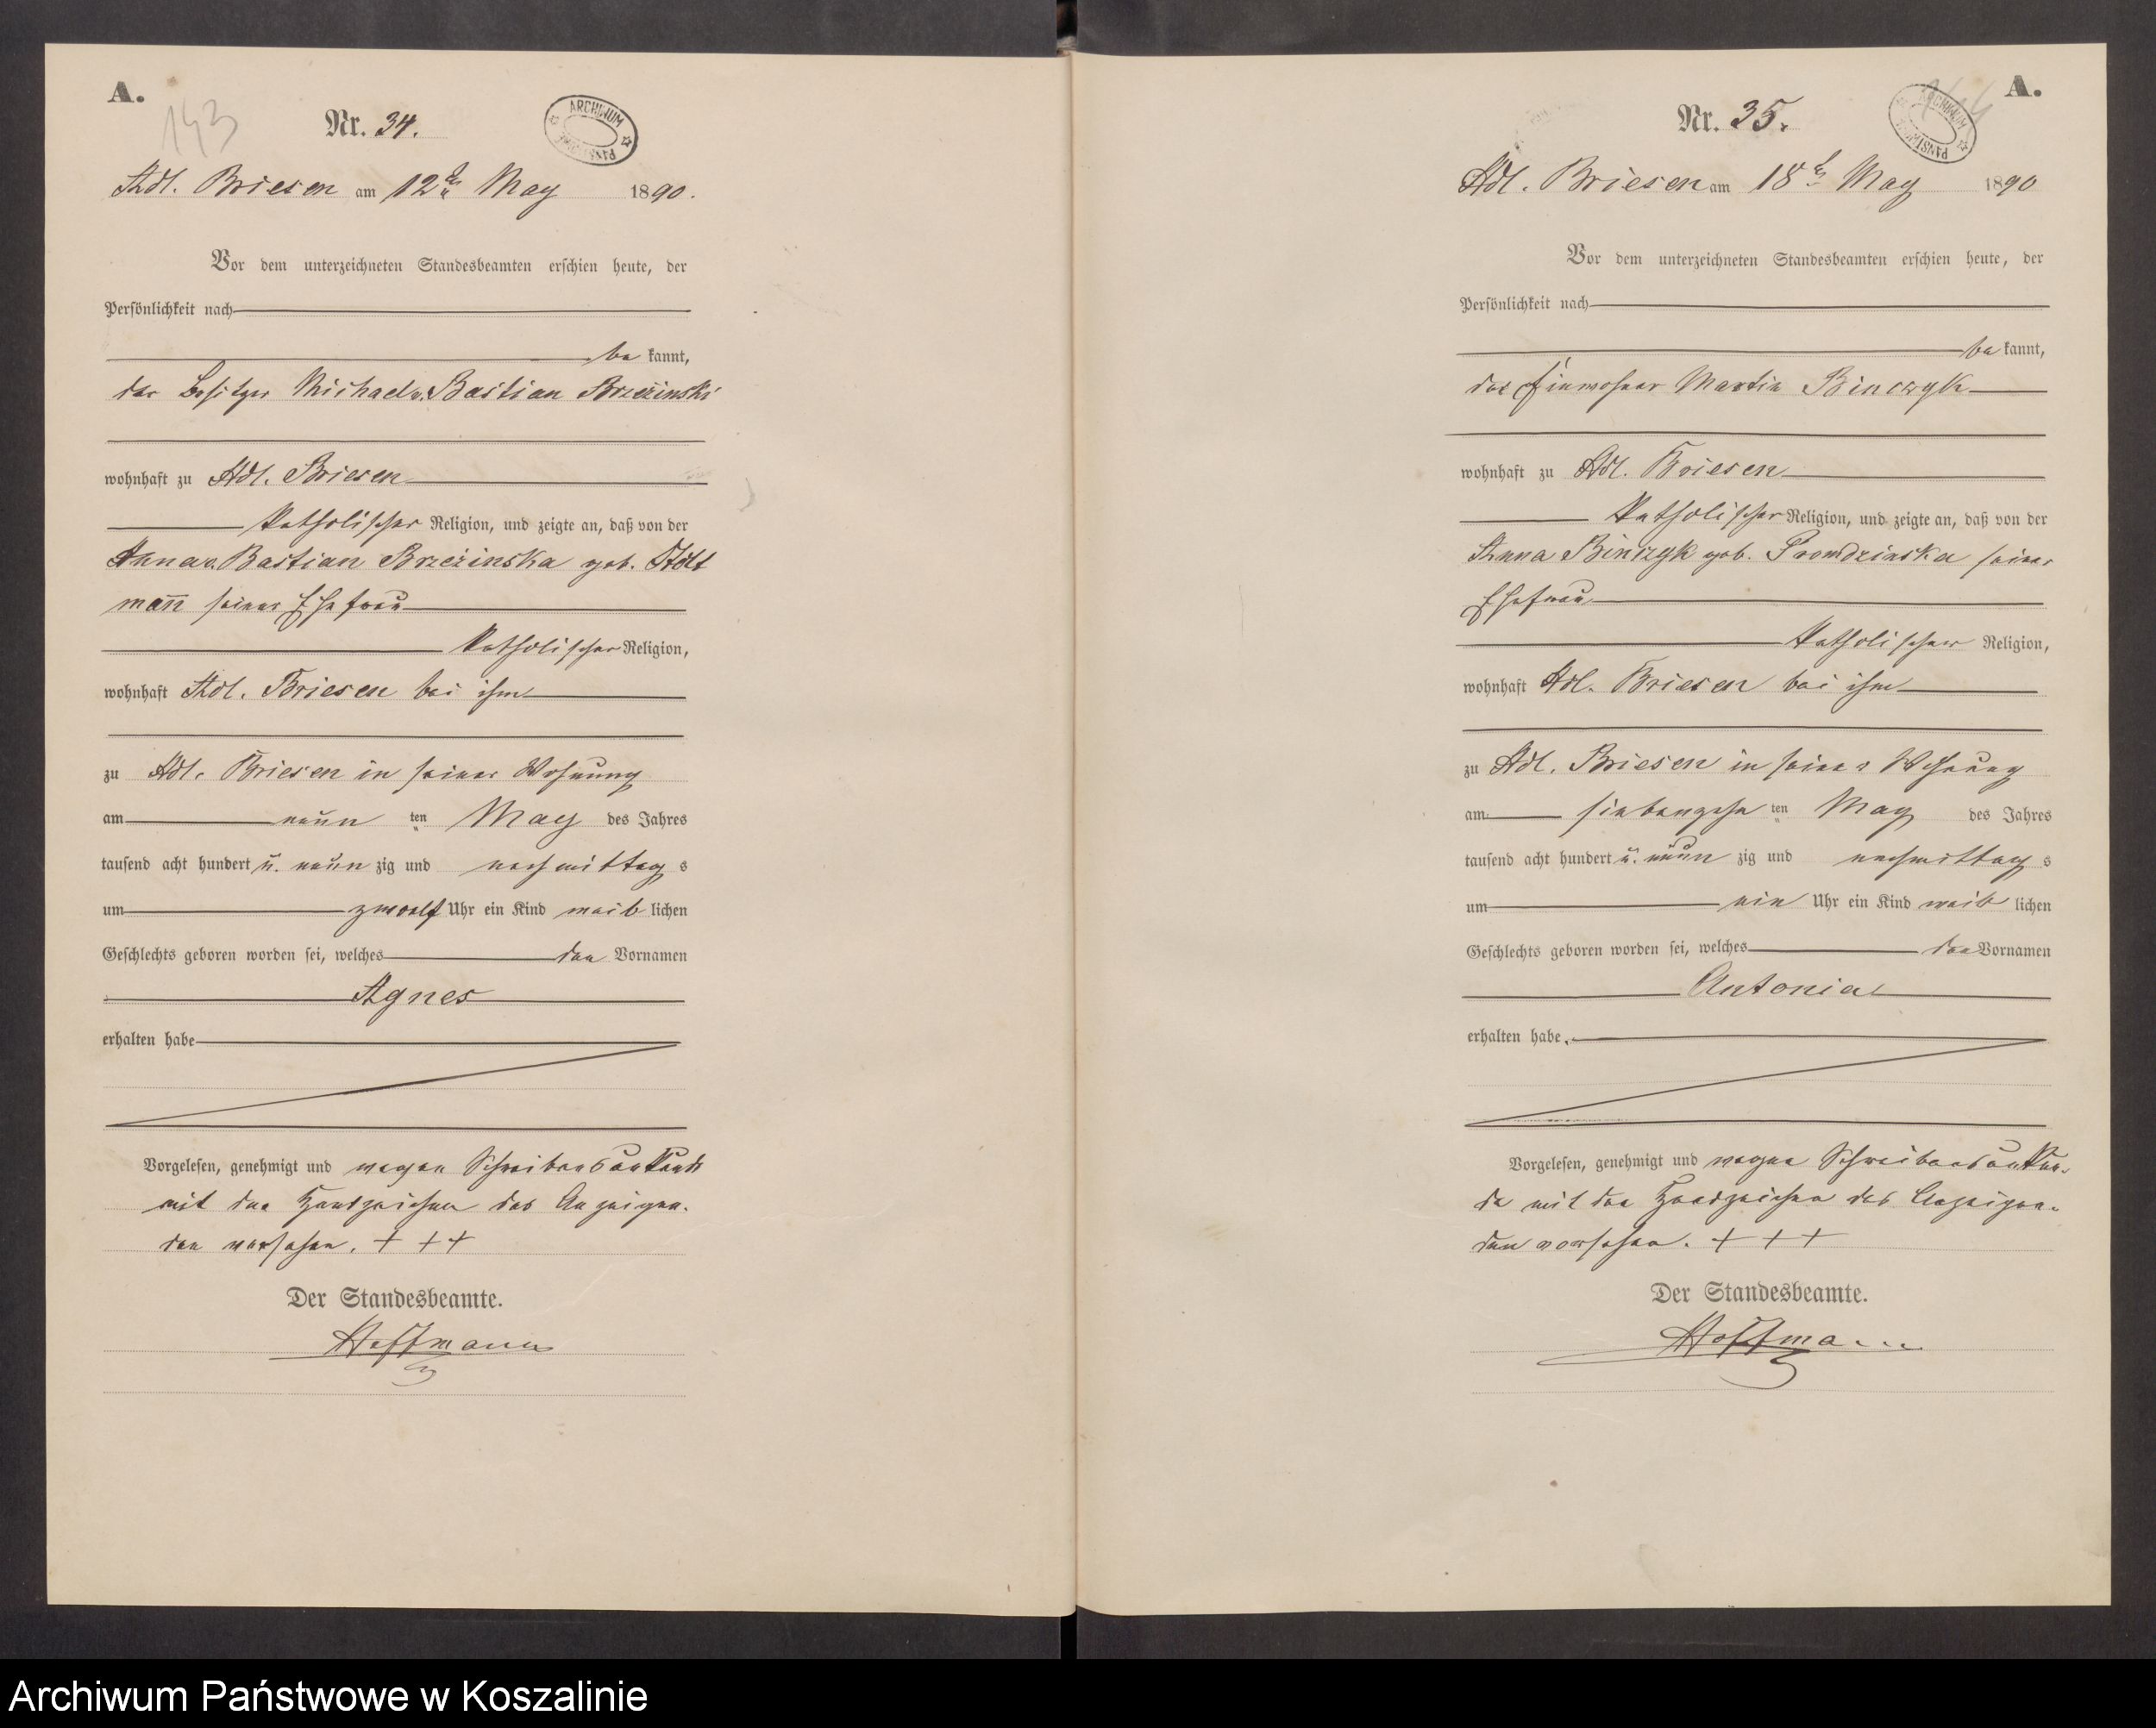 A.
143
Nr. 34.
ARCHIWUM
Adl. Briesen am 12ten May 1890.
Vor dem unterzeichneten Standesbeamten erschien heute, der
Persönlichkeit nach
be kannt,
der Besitzer Michael v. Bastian Brzeżinski
wohnhaft zu Adl. Briesen
katholischer Religion, und zeigte an, daß von der
Anna v. Bastian Brzeżinska geb. Stolt
mañ seiner Ehefrau
katholischer Religion,
wohnhaft Adl. Briesen bei ihm
zu Adl. Briesen in seiner Wohnung
am neun ten May des Jahres
tausend acht hundert u. neun zig und nachmittag s
um zwoelf Uhr ein Kind weib lichen
Geschlechts geboren worden sei, welches den Vornamen
Agnes
erhalten habe
Vorgelesen, genehmigt und wegen Schreibensunkunde
mit den Handzeichen des Anzeigen-
den versehen. + + +
Der Standesbeamte.
Hoffmann
A.
Nr. 35.
ARCHIWUM
Adl. Briesen am 18ten May 1890
Vor dem unterzeichneten Standesbeamten erschien heute, der
Persönlichkeit nach
be kannt,
der Einwohner Martin Binczyk
wohnhaft zu Adl. Briesen
katholischer Religion, und zeigte an, daß von der
Anna Binczyk geb. Prondzinska seiner
Ehefrau
katholischer Religion,
wohnhaft Adl. Briesen bei ihm
zu Adl. Briesen in seiner Wohnung
am siebenzehn ten May des Jahres
tausend acht hundert u. neun zig und nachmittag s
um ein Uhr ein Kind weib lichen
Geschlechts geboren worden sei, welches den Vornamen
Antonia
erhalten habe.
Vorgelesen, genehmigt und wegen Schreibensunkun-
de mit den Handzeichen des Anzeigen-
den versehen. + + +
Der Standesbeamte.
Hoffmann
Archiwum Państwowe w Koszalinie